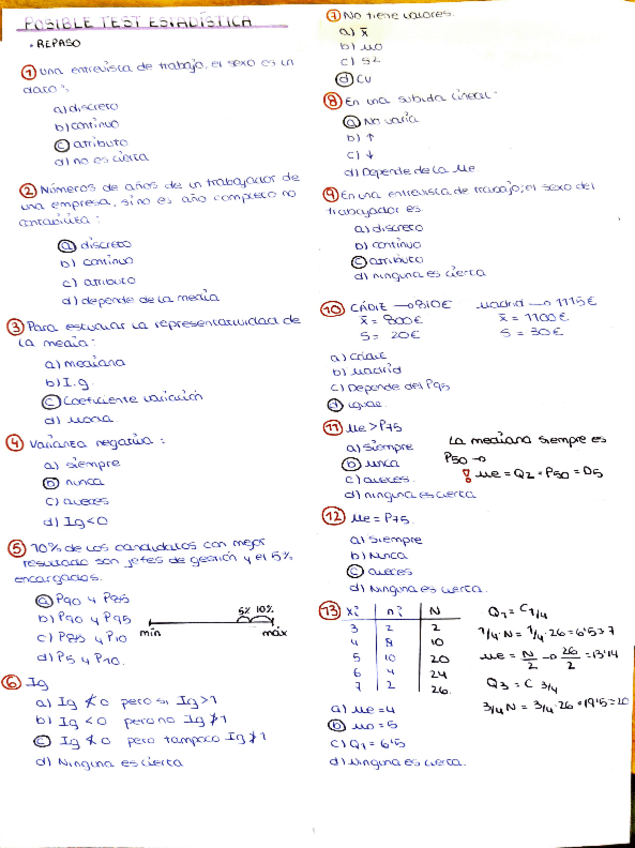 POSIBLE TEST ESTADÍSTICA
• REPASO
① Una entrevista de trabajo, el sexo es un
dato:
a) discreto
b) continuo
c) atributo
d) no es cierta
② Números de años de un trabajador de
una empresa, si no es año completo no
contabiliza:
a) discreto
b) continuo
c) atributo
d) depende de la media
③ Para estudiar la representatividad de
la media:
a) mediana
b) I.g.
c) Coeficiente variación
d) moda.
④ Varianza negativa:
a) siempre
b) nunca
c) aveces
d) Ig<0
⑤ 10% de los candidatos con mejor
resultado son jefes de gestión y el 5%
encargados.
a) P90 y P85
b) P90 y P95
c) P85 y P10
d) P5 y P10.
5% 10%
min máx
⑥ Ig
a) Ig ≮ 0 pero si Ig>1
b) Ig <0 pero no Ig ≯1
c) Ig ≮ 0 pero tampoco Ig ≯1
d) Ninguna es cierta
⑦ No tiene valores.
a) x̄
b) Mo
c) S2
d) CV
⑧ En una subida lineal:
a) No varía
b) ↑
c) ↓
d) Depende de la Me
⑨ En una entrevista de trabajo; el sexo del
trabajador es
a) discreto
b) continuo
c) atributo
d) ninguna es cierta
⑩ CÁDIZ → 810€ Madrid → 1115€
x̄ = 800€ x̄ = 1100€
S = 20€ S = 30€
a) Cádiz
b) Madrid
c) Depende del P95
d) igual.
⑪ Me > P75
a) siempre
b) nunca
c) aveces.
d) ninguna es cierta
La mediana siempre es
P50 →
! Me = Q2 = P50 = D5
⑫ Me = P75.
a) Siempre
b) Nunca
c) aveces
d) Ninguna es cierta.
⑬ xi ni N
3 2 2
4 8 10
5 10 20
6 4 24
7 2 26.
Q1 = C 1/4
1/4·N = 1/4·26 = 6'5→7
Me = N/2 → 26/2 = 13'14
Q3 = C 3/4
3/4 N = 3/4·26 = 19'5=20
a) Me = 4
b) Mo = 5
c) Q1 = 6'5
d) Ninguna es cierta.